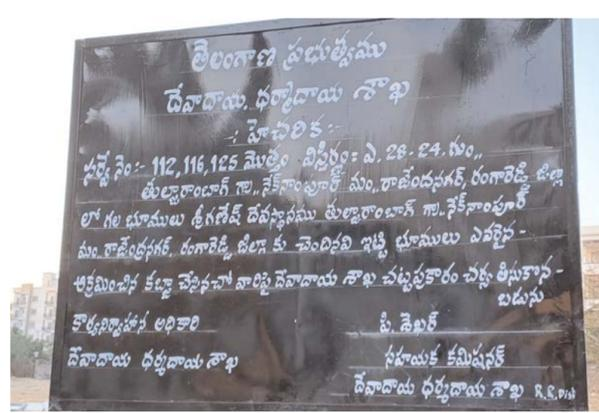 తెలంగాణ ప్రభుత్వము
దేవాదాయ, ధర్మాదాయ శాఖ
: హెచరిక :-
సర్వే నెం :- 112, 116, 125 మొత్తం విస్తీర్ణం: ఎ. 28-24. గుం,,
తుల్జారాంబాగ్ గా,, నేక్‌నాంపూర్ మం, రాజేంద్రనగర్, రంగారెడ్డి జిల్లా
లో గల భూములు శ్రీ గణేష్ దేవస్థానము తుల్జారాంబాగ్ గా,, నేక్‌నాంపూర్
మం, రాజేంద్రనగర్, రంగారెడ్డి, జిల్లా కు చెందినవి ఇట్టి భూములు ఎవరైన-
ఆక్రమించిన కబ్జా చేసినచో వారిపై దేవాదాయ శాఖ చట్టప్రకారం చర్య తీసుకొన-
బడును
కార్యనిర్వాహన అధికారి పి. శేఖర్
సహాయక కమిషనర్
దేవాదాయ ధర్మదాయ శాఖ దేవాదాయ ధర్మదాయ శాఖ R.R.Dist